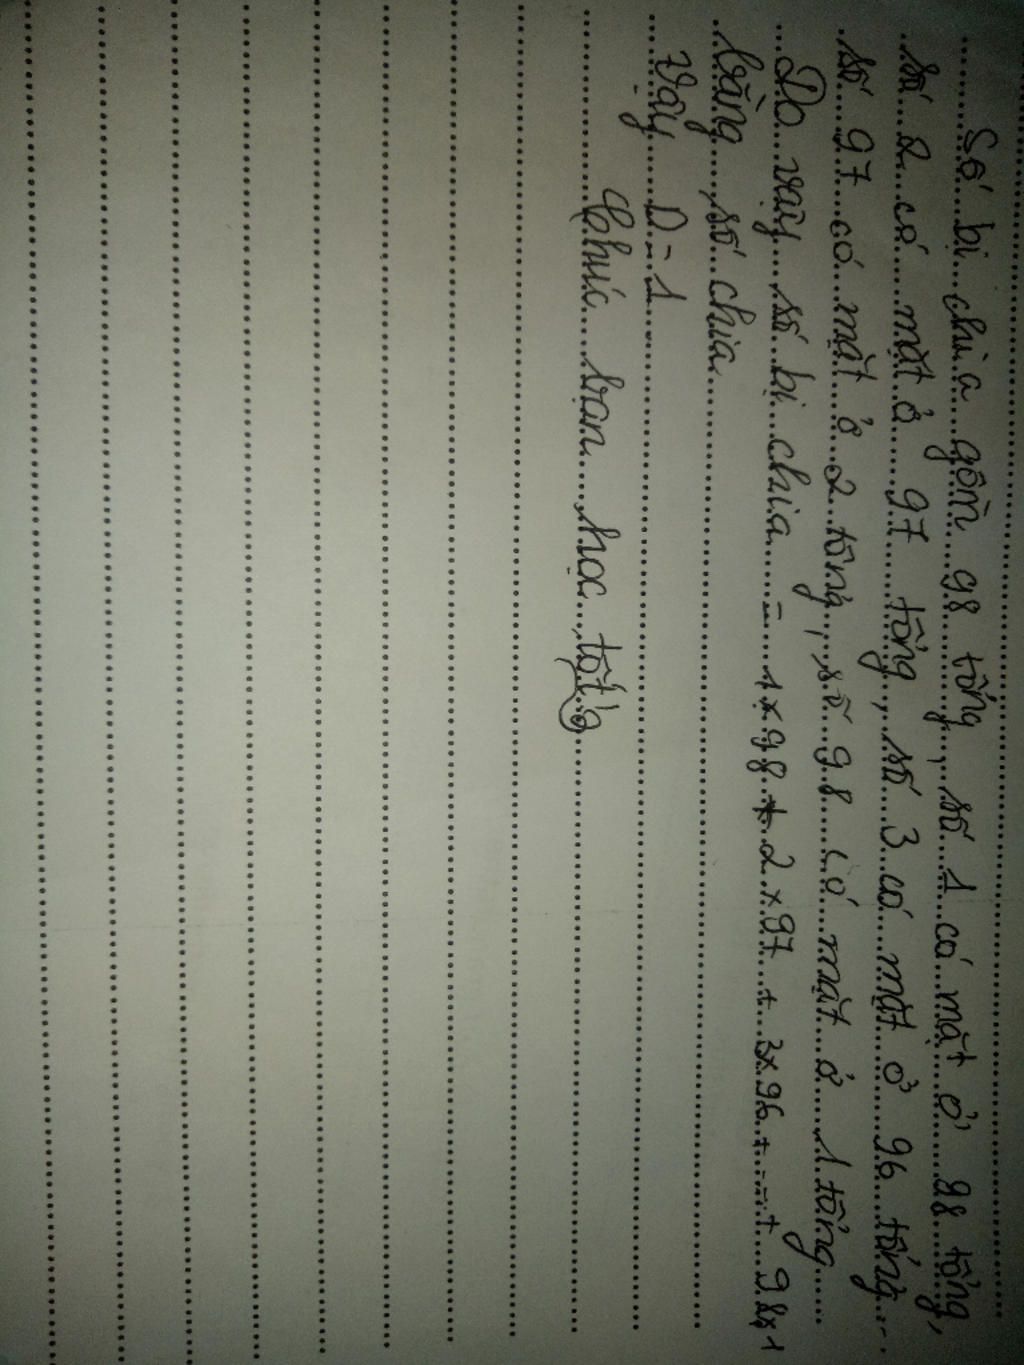 Số bị chia gồm 98 tổng, số 1 có mặt ở 98 tổng,
số 2 có mặt ở 97 tổng, số 3 có mặt ở 96 tổng...
số 97 có mặt ở 2 tổng, số 98 có mặt ở 1 tổng
Do vậy số bị chia = 1 x 98 + 2 x 97 + 3 x 96 + ... + 98 x 1
bằng số chia.
Vậy D = 1
Chúc bạn học tốt